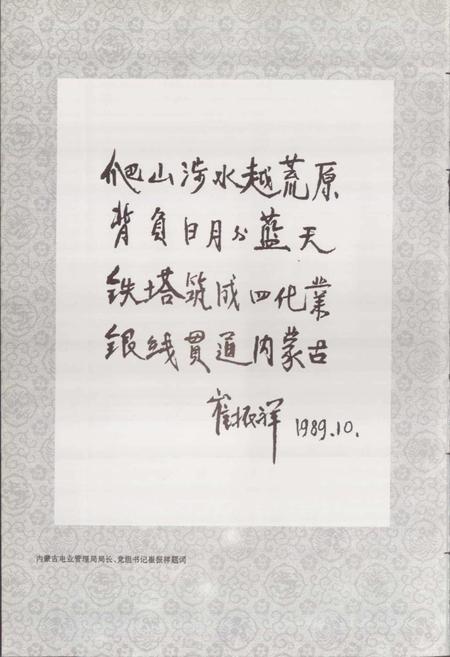 爬山涉水越荒原
背负日月与蓝天
铁塔筑成四化業
银线贯通内蒙古
崔振祥 1989.10.
内蒙古电业管理局局长、党组书记崔振祥题词